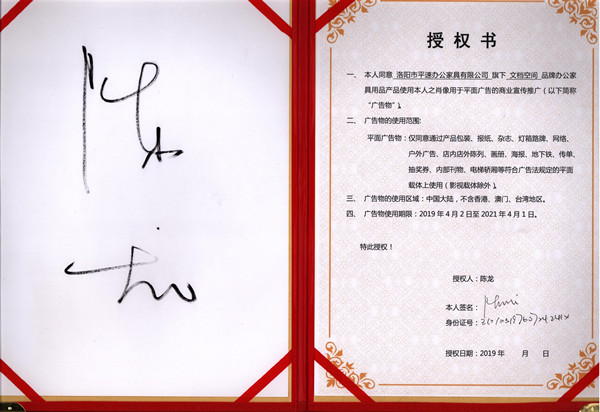 授权书
一、本人同意 洛阳市平速办公家具有限公司 旗下 文档空间 品牌办公家
具用品产品使用本人之肖像用于平面广告的商业宣传推广（以下简称
“广告物”）。
二、广告物的使用范围:
平面广告物：仅同意通过产品包装、报纸、杂志、灯箱路牌、网络、
户外广告、店内店外陈列、画册、海报、地下铁、传单、
抽奖券、内部刊物、电梯轿厢等符合广告法规定的平面
载体上使用（影视载体除外）。
三、广告物的使用区域：中国大陆，不含香港、澳门、台湾地区。
四、广告物使用期限：2019 年 4 月 2 日至 2021 年 4 月 1 日。
特此授权！
授权人：陈龙
本人签名：
身份证号：
授权日期：2019 年 月 日